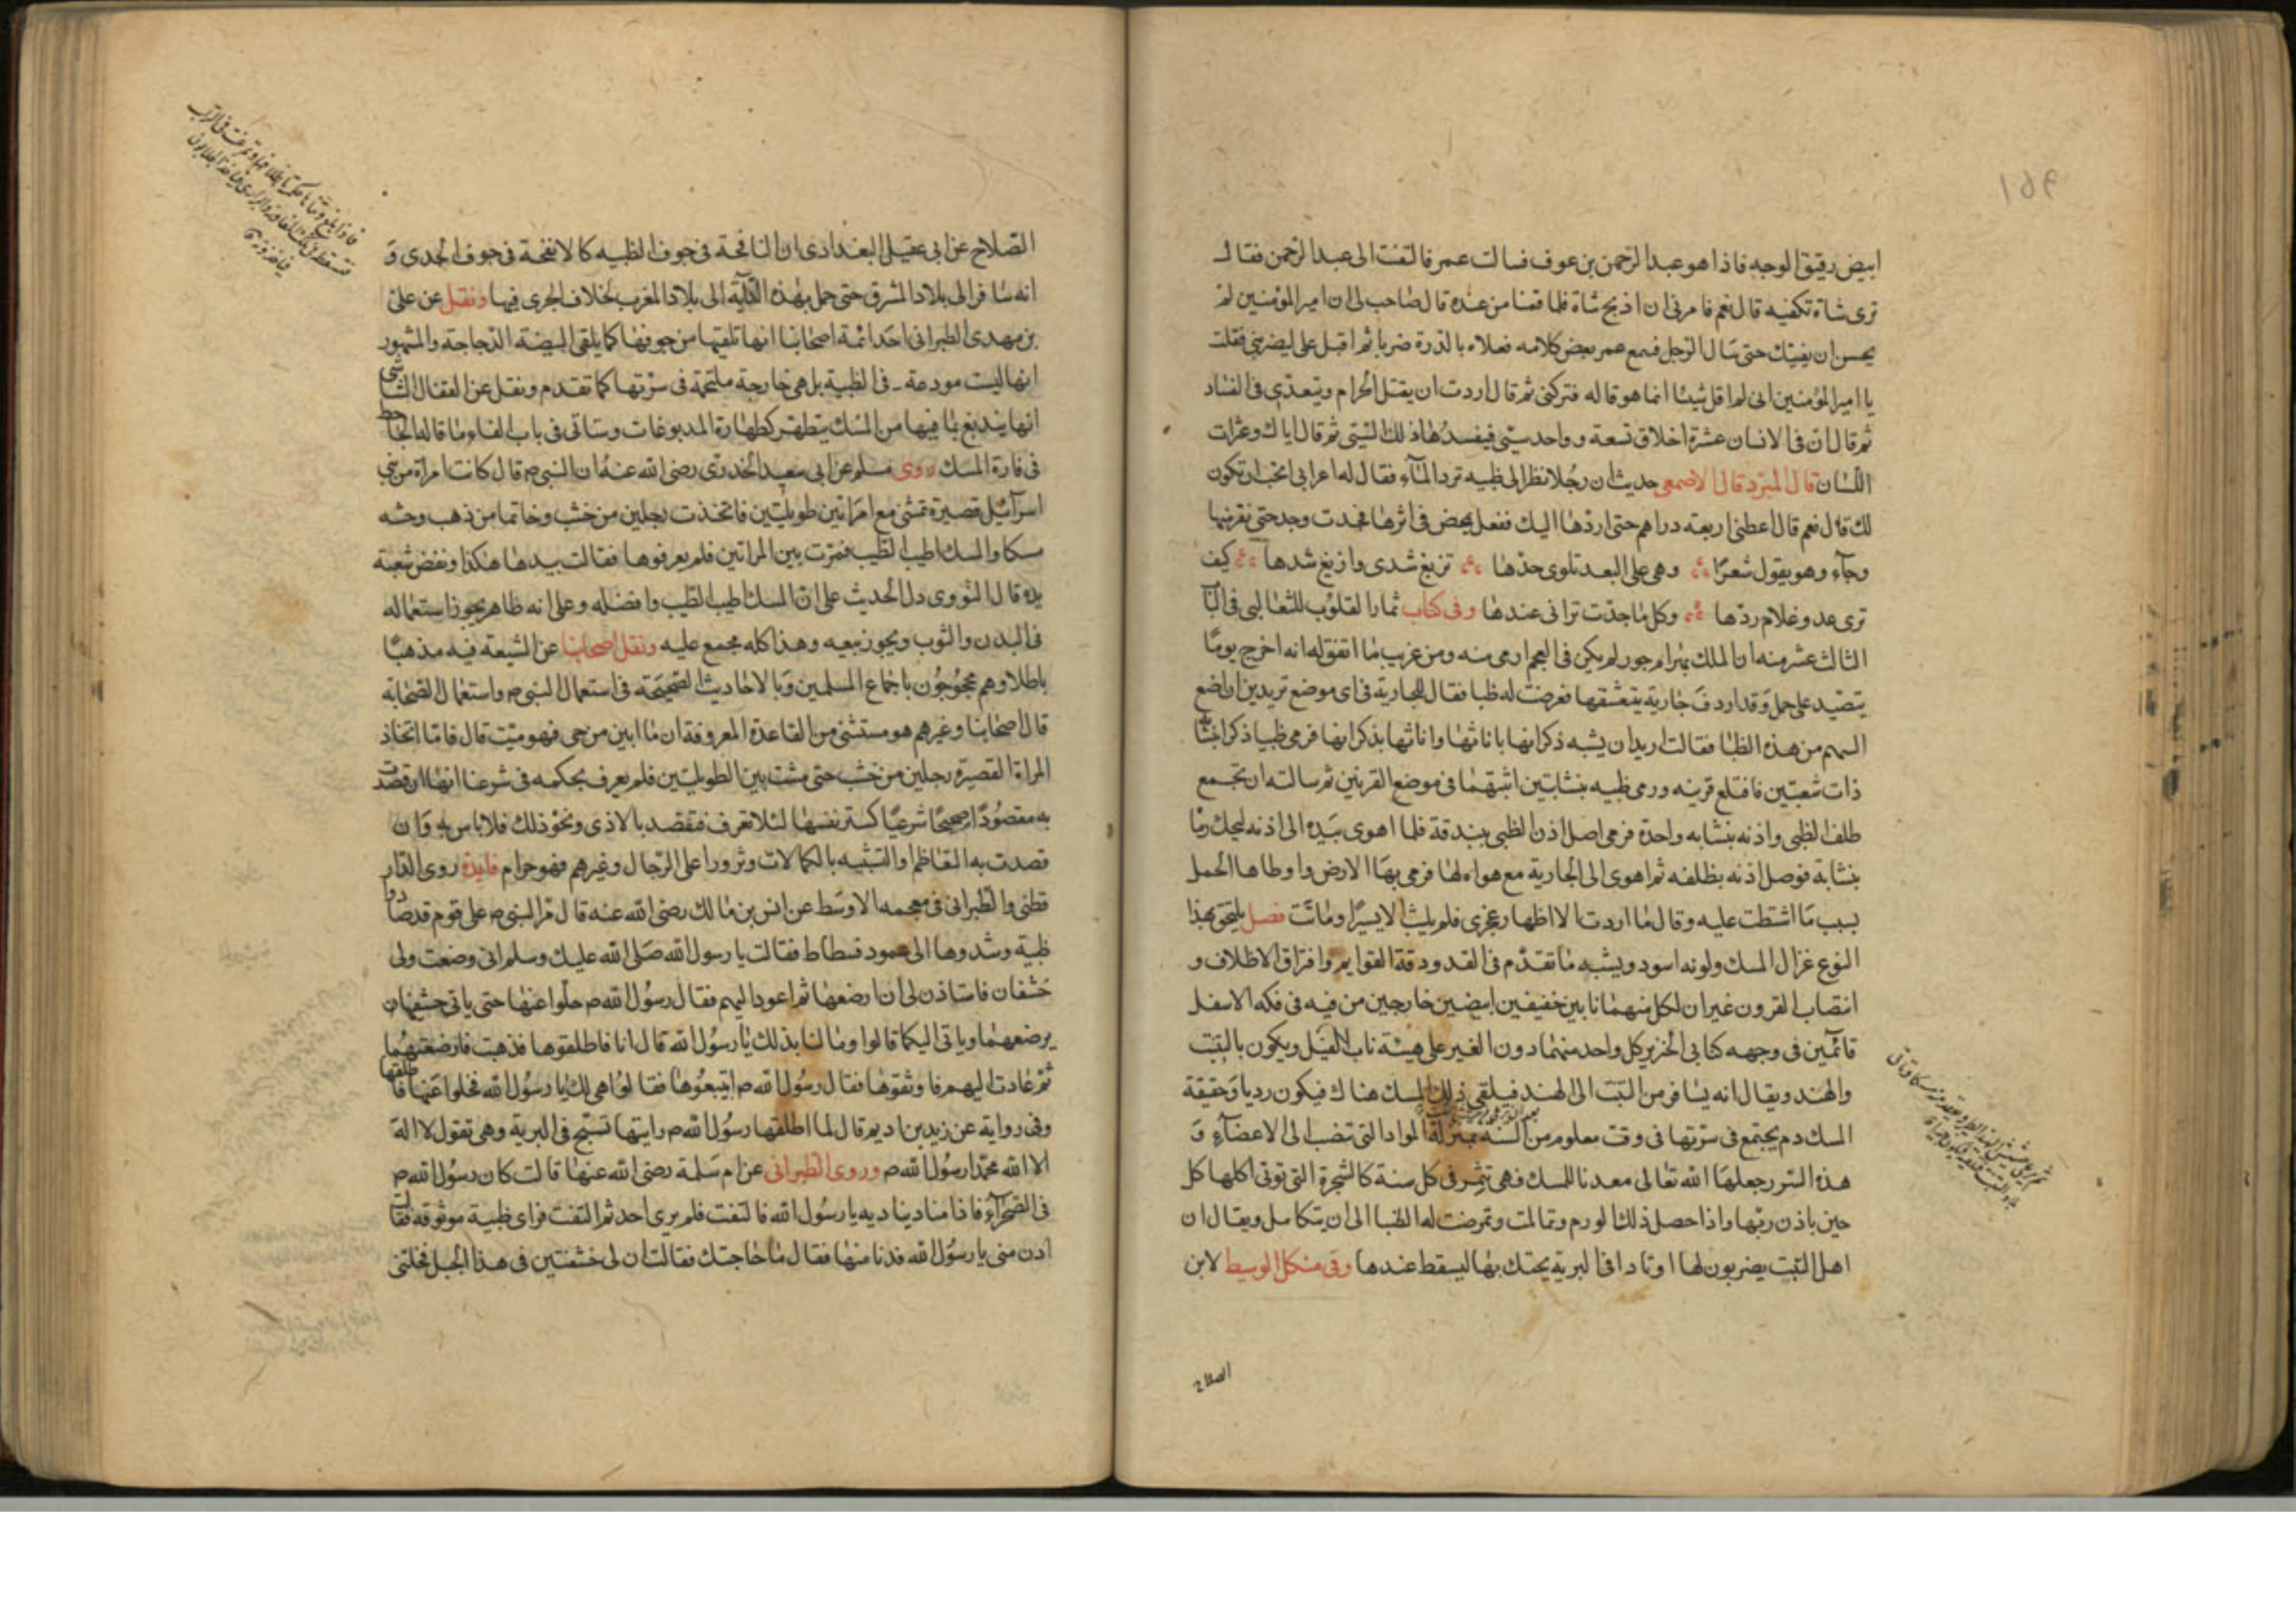 ابيض رقيق الوجه فاذا هو عبد الرحمن بن عوف فسالت عمر فالتفت الى عبد الرحمن فقال
ترى شاة تكفيه قال نعم فامرنى ان اذبح شاة فلما قمنا من عنده قال صاحب لى ان امير المؤمنين لم
يحسن ان يفتيك حتى سال الرجل فسمع عمر بعض كلامه فعلاه بالدرة ضربا ثم اقبل على ليضربنى فقلت
يا امير المؤمنين انى لم اقل شيئا انما هو قاله فتركنى ثم قال اردت ان يقتل الحرام ويتعدى فى الفتاد
ثم قال ان فى الانسان عشرة اخلاق تسعة وواحد سيى فيفسدها ذلك السيى ثم قال اياك وعثرات
اللسان قال المبرد قال الاصمعى حديث ان رجلا نظر الى ظبيه ترد المآء فقال له اعرابى اتحب ان تكون
لك قال نعم قال اعطنى اربعة دراهم حتى اردها اليك ففعل يمحض فى اثرها فجدت وجد حتى بقرنيها
وجآء وهو يقول شعرا وهى على البعد تلوى خدها تزيغ شدى وازيغ شدها كيف
ترى عدو غلام ردها وكل ما جدت ترانى عندها وفى كتاب ثمار القلوب للثعالبى فى البا
الثالث عشر منه ان الملك بهرام جور لم يكن فى العجم ارمى منه ومن غريب ما اتفق له انه اخرج يوما
يتصيد على جمل وقد اردف جارية يتعشقها فعرضت له ظبا فقال للجارية فى اى موضع تريدين ان اضع
السهم من هذه الظبا فقالت اريد ان يشبه ذكرانها باناثها واناثها بذكرانها فرمى ظبيا ذكرا بنشا
ذات شعبتين فاقتلع قرنيه ورمى ظبيه بنشابتين اثبتهما فى موضع القرنين ثم سالته ان يجمع
ظلف الظبى واذنه بنشابه واحدة فرمى اصل اذن الظبى ببندقة فلما اهوى بيده الى اذنه ليحك رما
بنشابة فوصل اذنه بظلفه ثم اهوى الى الجارية مع هواه لها فرمى بها الارض واوطاها الجمل
بسبب ما اشتطت عليه وقال ما اردت الا اظهار عجزى فلم يلبث الا يسيرا وماتت فصل يلتحق بهذا
النوع غزال المسك ولونه اسود ويشبه ما تقدم فى القد ودقة القوايم وافتراق الاظلاف و
انتصاب القرون غير ان لكل منهما نابين خفيفين ابيضين خارجين من فيه فى فكه الاسفل
قائمين فى وجهه كنابى الخنزير كل واحد منهما دون الفير على هيئة ناب الفيل ويكون بالتبت
والهند ويقال انه يسافر من التبت الى الهند فيلقى ذلك المسك هناك فيكون رديا وحقيقة
المسك دم يجتمع فى سرتها فى وقت معلوم من السنه بمنزلة المواد التى تنصب الى الاعضآء و
هذه السرر جعلها الله تعالى معدنا للمسك فهى تثمر فى كل سنة كالشجرة التى توتى اكلها كل
حين باذن ربها واذا حصل ذلك الورم وتمالمت وتمرضت له الظبا الى ان يتكامل ويقال ان
اهل التبت يضربون لها اوتادا فى البرية يحتك بها ليسقط عندها وفى مشكل الوسيط لابن
الصلاح
الصلاح عن ابى عقيل البغدادى ان النافجة فى جوف الظبيه كالانفحة فى جوف الجدى و
انه سافر الى بلاد المشرق حتى حمل بهذه الدابة الى بلاد المغرب لخلاف الجرى فيها ونقل عن على
بن مهدى الطبرانى احد ائمة اصحابنا انها تلقيها من جوفها كما يلقى البيضة الدجاجة والمشهور
انها ليست مودعة فى الظبية بل هى خارجة ملتحمة فى سرتها كما تقدم ونقل عن القفال الشاشى
انها يندبغ بما فيها من المسك يتطهر كطهارة المدبوغات وستاتى فى باب الفاء ما قاله الجاحظ
فى فارة المسك روى مسلم عن ابى سعيد الخدرى رضى الله عنه ان النبى ص قال كانت امراة من بنى
اسرآئيل قصيرة تمشى مع امراتين طويلتين فاتخذت رجلين من خشب وخاتما من ذهب وحشه
مسكا والمسك اطيب الطيب فمرت بين المراتين فلم يعرفوها فقالت بيدها هكذا ونفض شعبة
يده قال النووى دل الحديث على ان المسك اطيب الطيب وافضله وعلى انه ظاهر يجوز استعماله
فى البدن والثوب ويجوز بيعه وهذا كله مجمع عليه ونقل اصحابنا عن الشيعة فيه مذهبا
باطلا وهم محجوجون باجماع المسلمين وبالاحاديث الصحيحة فى استعمال النبى ص واستعمال الصحابة
قال اصحابنا وغيرهم هو مستثنى من القاعدة المعروفة ان ما ابين من حى فهو ميت قال فاما اتخاذ
المراة القصيرة رجلين من خشب حتى مشت بين الطويلتين فلم يعرف بحكمه فى شرعنا انها ان قصدت
به مقصودا صحيحا شرعيا كستر نفسها لئلا تعرف فتقصد بالاذى ونحو ذلك فلا باس به وان
قصدت به التعاظم او التشبيه بالكمالات وتزورا على الرجال وغيرهم فهو حرام فايدة روى الدار
قطنى والطبرانى فى معجمه الاوسط عن انس بن مالك رضى الله عنه قال مر النبى ص على قوم قد صادوا
ظبية وشدوها الى عمود فسطاط فقالت يا رسول الله صلى الله عليك وسلم انى وضعت ولى
خشفان فاستاذن لى ان ارضعها ثم اعود اليهم فقال رسول الله ص خلوا عنها حتى ياتى خشفيها ن
يرضعهما وياتى اليكما قالوا وما لنا بذلك يا رسول الله قال انا فاطلقوها فذهبت فارضعتهما
ثم عادت اليهم فاوثقوها فقال رسول الله ص ابتيعوها فقالوا هى لك يا رسول الله فخلوا عنها فاطلقها
وفى رواية عن زيد بن ارقم قال لما اطلقها رسول الله ص رايتها تسبح فى البرية وهى تقول لا اله
الا الله محمد رسول الله ص وروى الطبرانى عن ام سلمة رضى الله عنها قالت كان رسول الله ص
فى الصحرآء فاذا مناد يناديه يا رسول الله فالتفت فلم يرى احد ثم التفت فراى ظبية موثوقه فقالت
ادن منى يا رسول الله فدنا منها فقال ما حاجتك فقالت ان لى خشفتين فى هذا الجبل فخلتنى